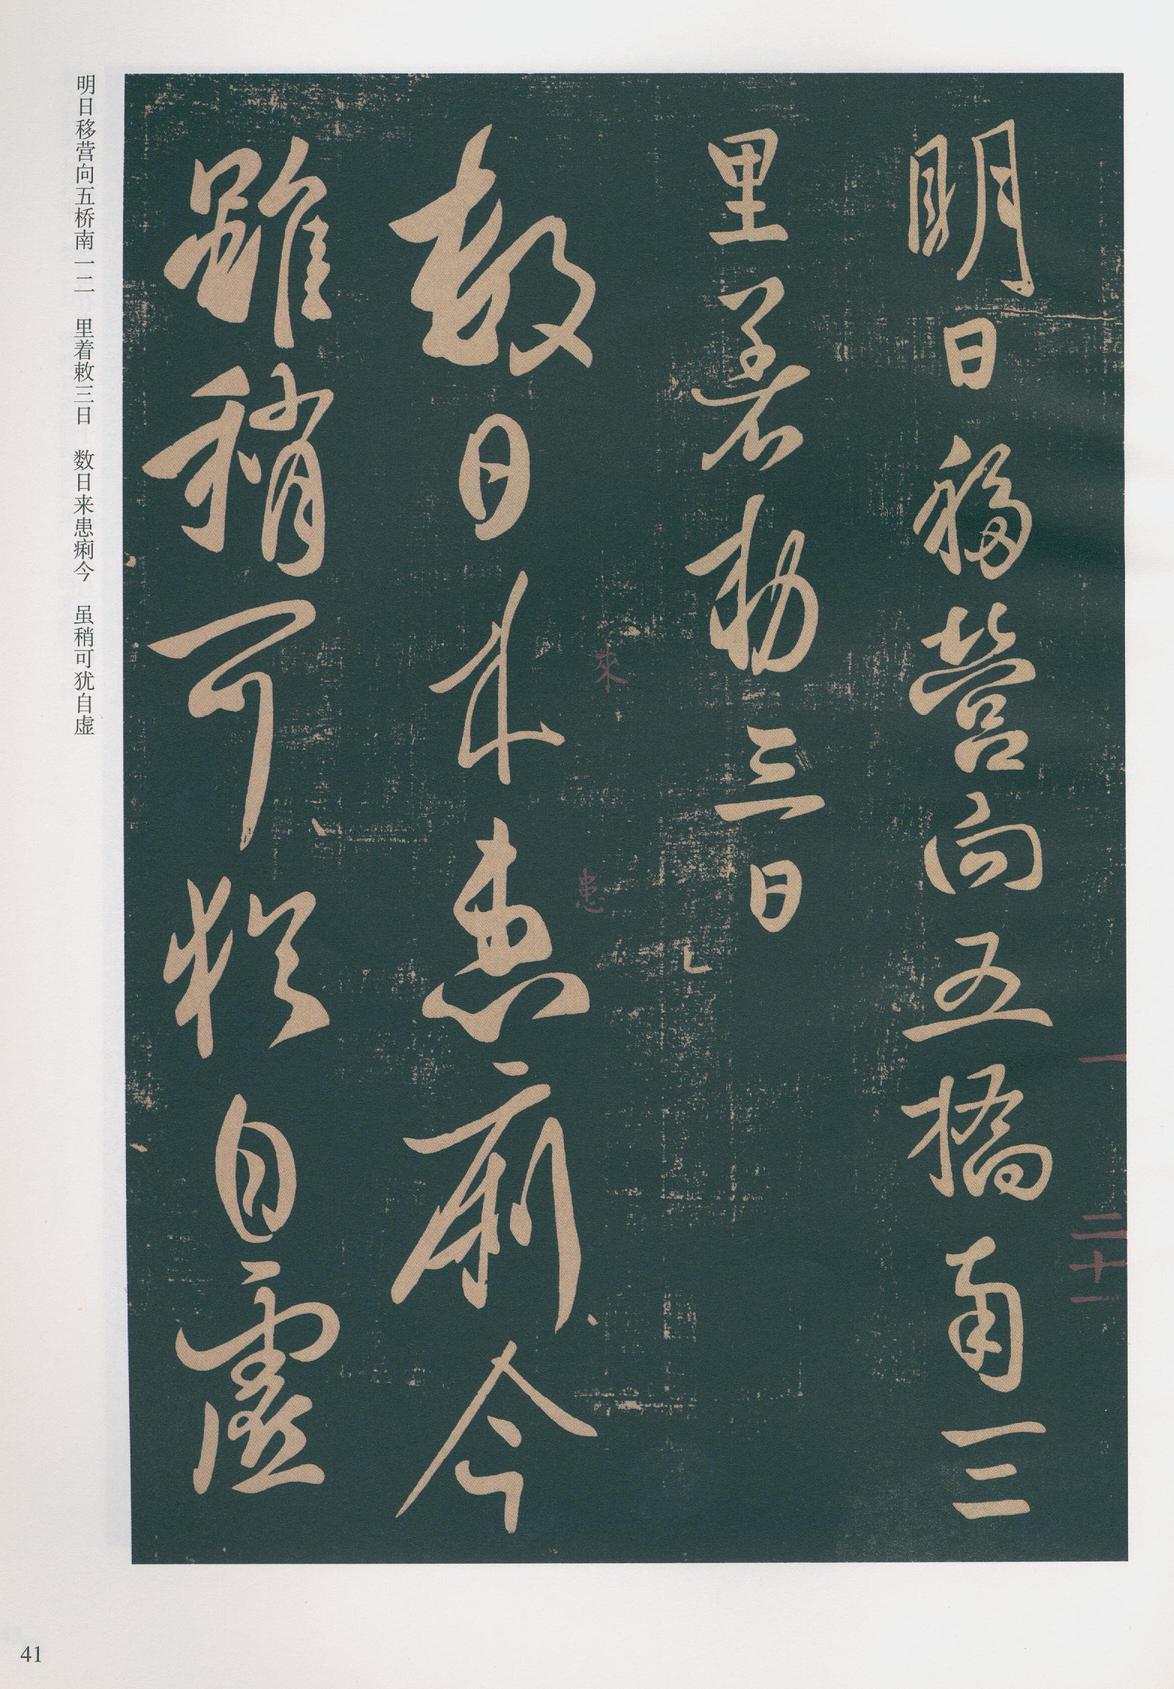 明日移營向五橋南一二
里着勅三日
數日来患痢今
雖稍可猶自虛
來
患
一
二十一
明日移营向五桥南一二　里着敕三日　数日来患痢今　虽稍可犹自虚
41